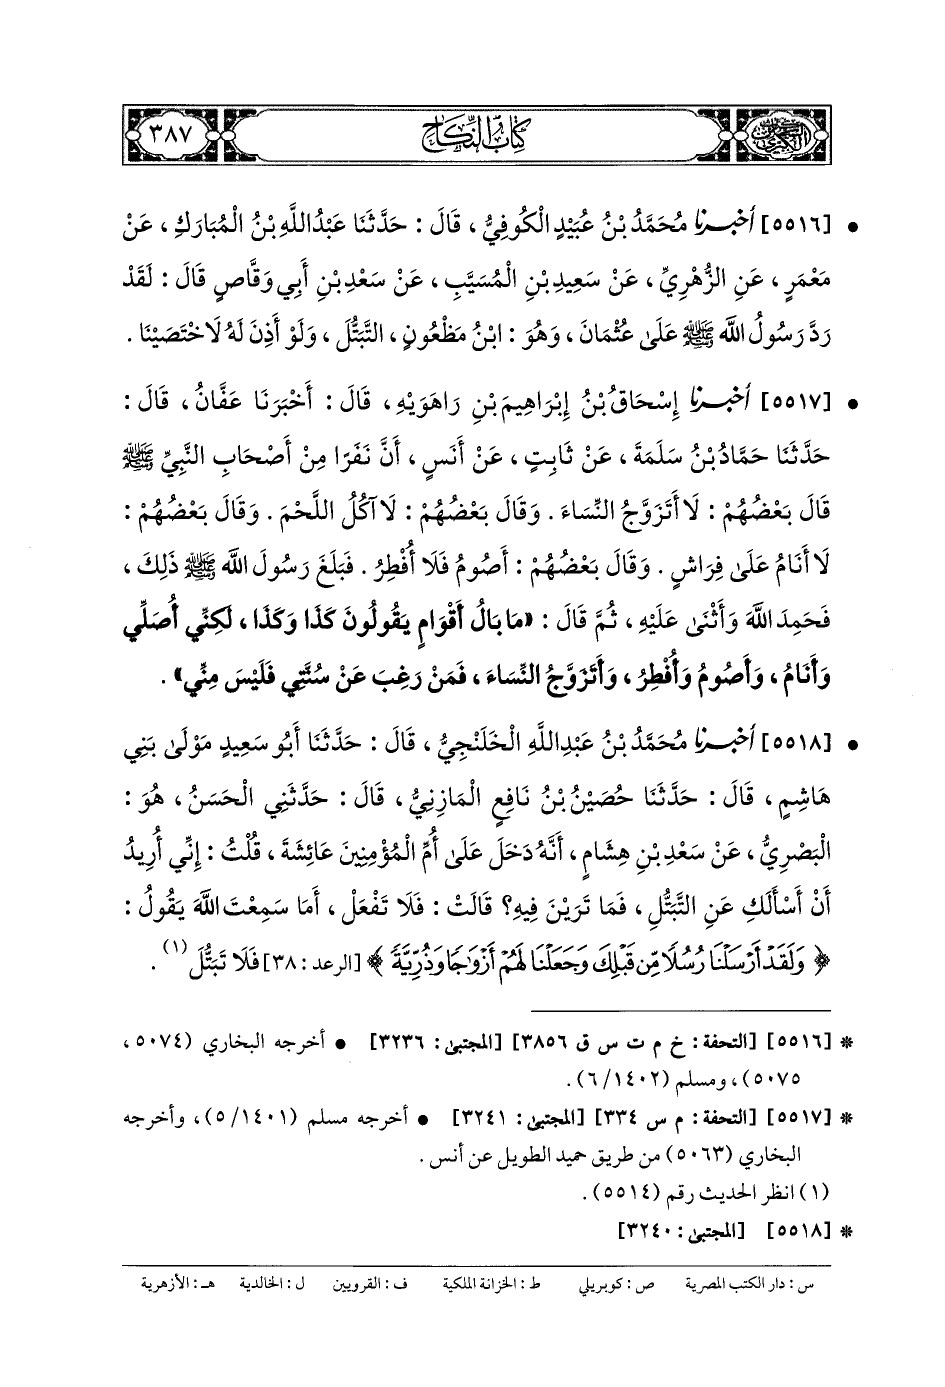 السنن الكبرى كتاب النكاح ٣٨٧
• [٥٥١٦] أخبرنا مُحَمَّدُ بْنُ عُبَيْدٍ الْكُوفِيُّ، قَالَ: حَدَّثَنَا عَبْدُ اللَّهِ بْنُ الْمُبَارَكِ، عَنْ
مَعْمَرٍ، عَنِ الزُّهْرِيِّ، عَنْ سَعِيدِ بْنِ الْمُسَيَّبِ، عَنْ سَعْدِ بْنِ أَبِي وَقَّاصٍ قَالَ: لَقَدْ
رَدَّ رَسُولُ اللَّهِ ﷺ عَلَى عُثْمَانَ، وَهُوَ: ابْنُ مَظْعُونٍ، التَّبَتُّلَ، وَلَوْ أَذِنَ لَهُ لَاخْتَصَيْنَا.
• [٥٥١٧] أخبرنا إِسْحَاقُ بْنُ إِبْرَاهِيمَ بْنِ رَاهَوَيْهِ، قَالَ: أَخْبَرَنَا عَفَّانُ، قَالَ:
حَدَّثَنَا حَمَّادُ بْنُ سَلَمَةَ، عَنْ ثَابِتٍ، عَنْ أَنَسٍ، أَنَّ نَفَرًا مِنْ أَصْحَابِ النَّبِيِّ ﷺ
قَالَ بَعْضُهُمْ: لَا أَتَزَوَّجُ النِّسَاءَ. وَقَالَ بَعْضُهُمْ: لَا آكُلُ اللَّحْمَ. وَقَالَ بَعْضُهُمْ:
لَا أَنَامُ عَلَى فِرَاشٍ. وَقَالَ بَعْضُهُمْ: أَصُومُ فَلَا أُفْطِرُ. فَبَلَغَ رَسُولَ اللَّهِ ﷺ ذَلِكَ،
فَحَمِدَ اللَّهَ وَأَثْنَى عَلَيْهِ، ثُمَّ قَالَ: «مَا بَالُ أَقْوَامٍ يَقُولُونَ كَذَا وَكَذَا، لَكِنِّي أُصَلِّي
وَأَنَامُ، وَأَصُومُ وَأُفْطِرُ، وَأَتَزَوَّجُ النِّسَاءَ، فَمَنْ رَغِبَ عَنْ سُنَّتِي فَلَيْسَ مِنِّي».
• [٥٥١٨] أخبرنا مُحَمَّدُ بْنُ عَبْدِ اللَّهِ الْخَلَنْجِيُّ، قَالَ: حَدَّثَنَا أَبُو سَعِيدٍ مَوْلَى بَنِي
هَاشِمٍ، قَالَ: حَدَّثَنَا حُصَيْنُ بْنُ نَافِعٍ الْمَازِنِيُّ، قَالَ: حَدَّثَنِي الْحَسَنُ، هُوَ:
الْبَصْرِيُّ، عَنْ سَعْدِ بْنِ هِشَامٍ، أَنَّهُ دَخَلَ عَلَى أُمِّ الْمُؤْمِنِينَ عَائِشَةَ، قُلْتُ: إِنِّي أُرِيدُ
أَنْ أَسْأَلَكِ عَنِ التَّبَتُّلِ، فَمَا تَرَيْنَ فِيهِ؟ قَالَتْ: فَلَا تَفْعَلْ، أَمَا سَمِعْتَ اللَّهَ يَقُولُ:
﴿وَلَقَدْ أَرْسَلْنَا رُسُلًا مِّن قَبْلِكَ وَجَعَلْنَا لَهُمْ أَزْوَٰجًا وَذُرِّيَّةً﴾ [الرعد: ٣٨] فَلَا تَبَتَّلْ (١).
* [٥٥١٦] [التحفة: خ م ت س ق ٣٨٥٦] [المجتبى: ٣٢٣٦] • أخرجه البخاري (٥٠٧٤،
٥٠٧٥)، ومسلم (٦/١٤٠٢).
* [٥٥١٧] [التحفة: م س ٣٣٤] [المجتبى: ٣٢٤١] • أخرجه مسلم (٥/١٤٠١)، وأخرجه
البخاري (٥٠٦٣) من طريق حميد الطويل عن أنس.
(١) انظر الحديث رقم (٥٥١٤).
* [٥٥١٨] [المجتبى: ٣٢٤٠]
س: دار الكتب المصرية ص: كوبريلي ط: الخزانة الملكية ف: القرويين ل: الخالدية هـ: الأزهرية